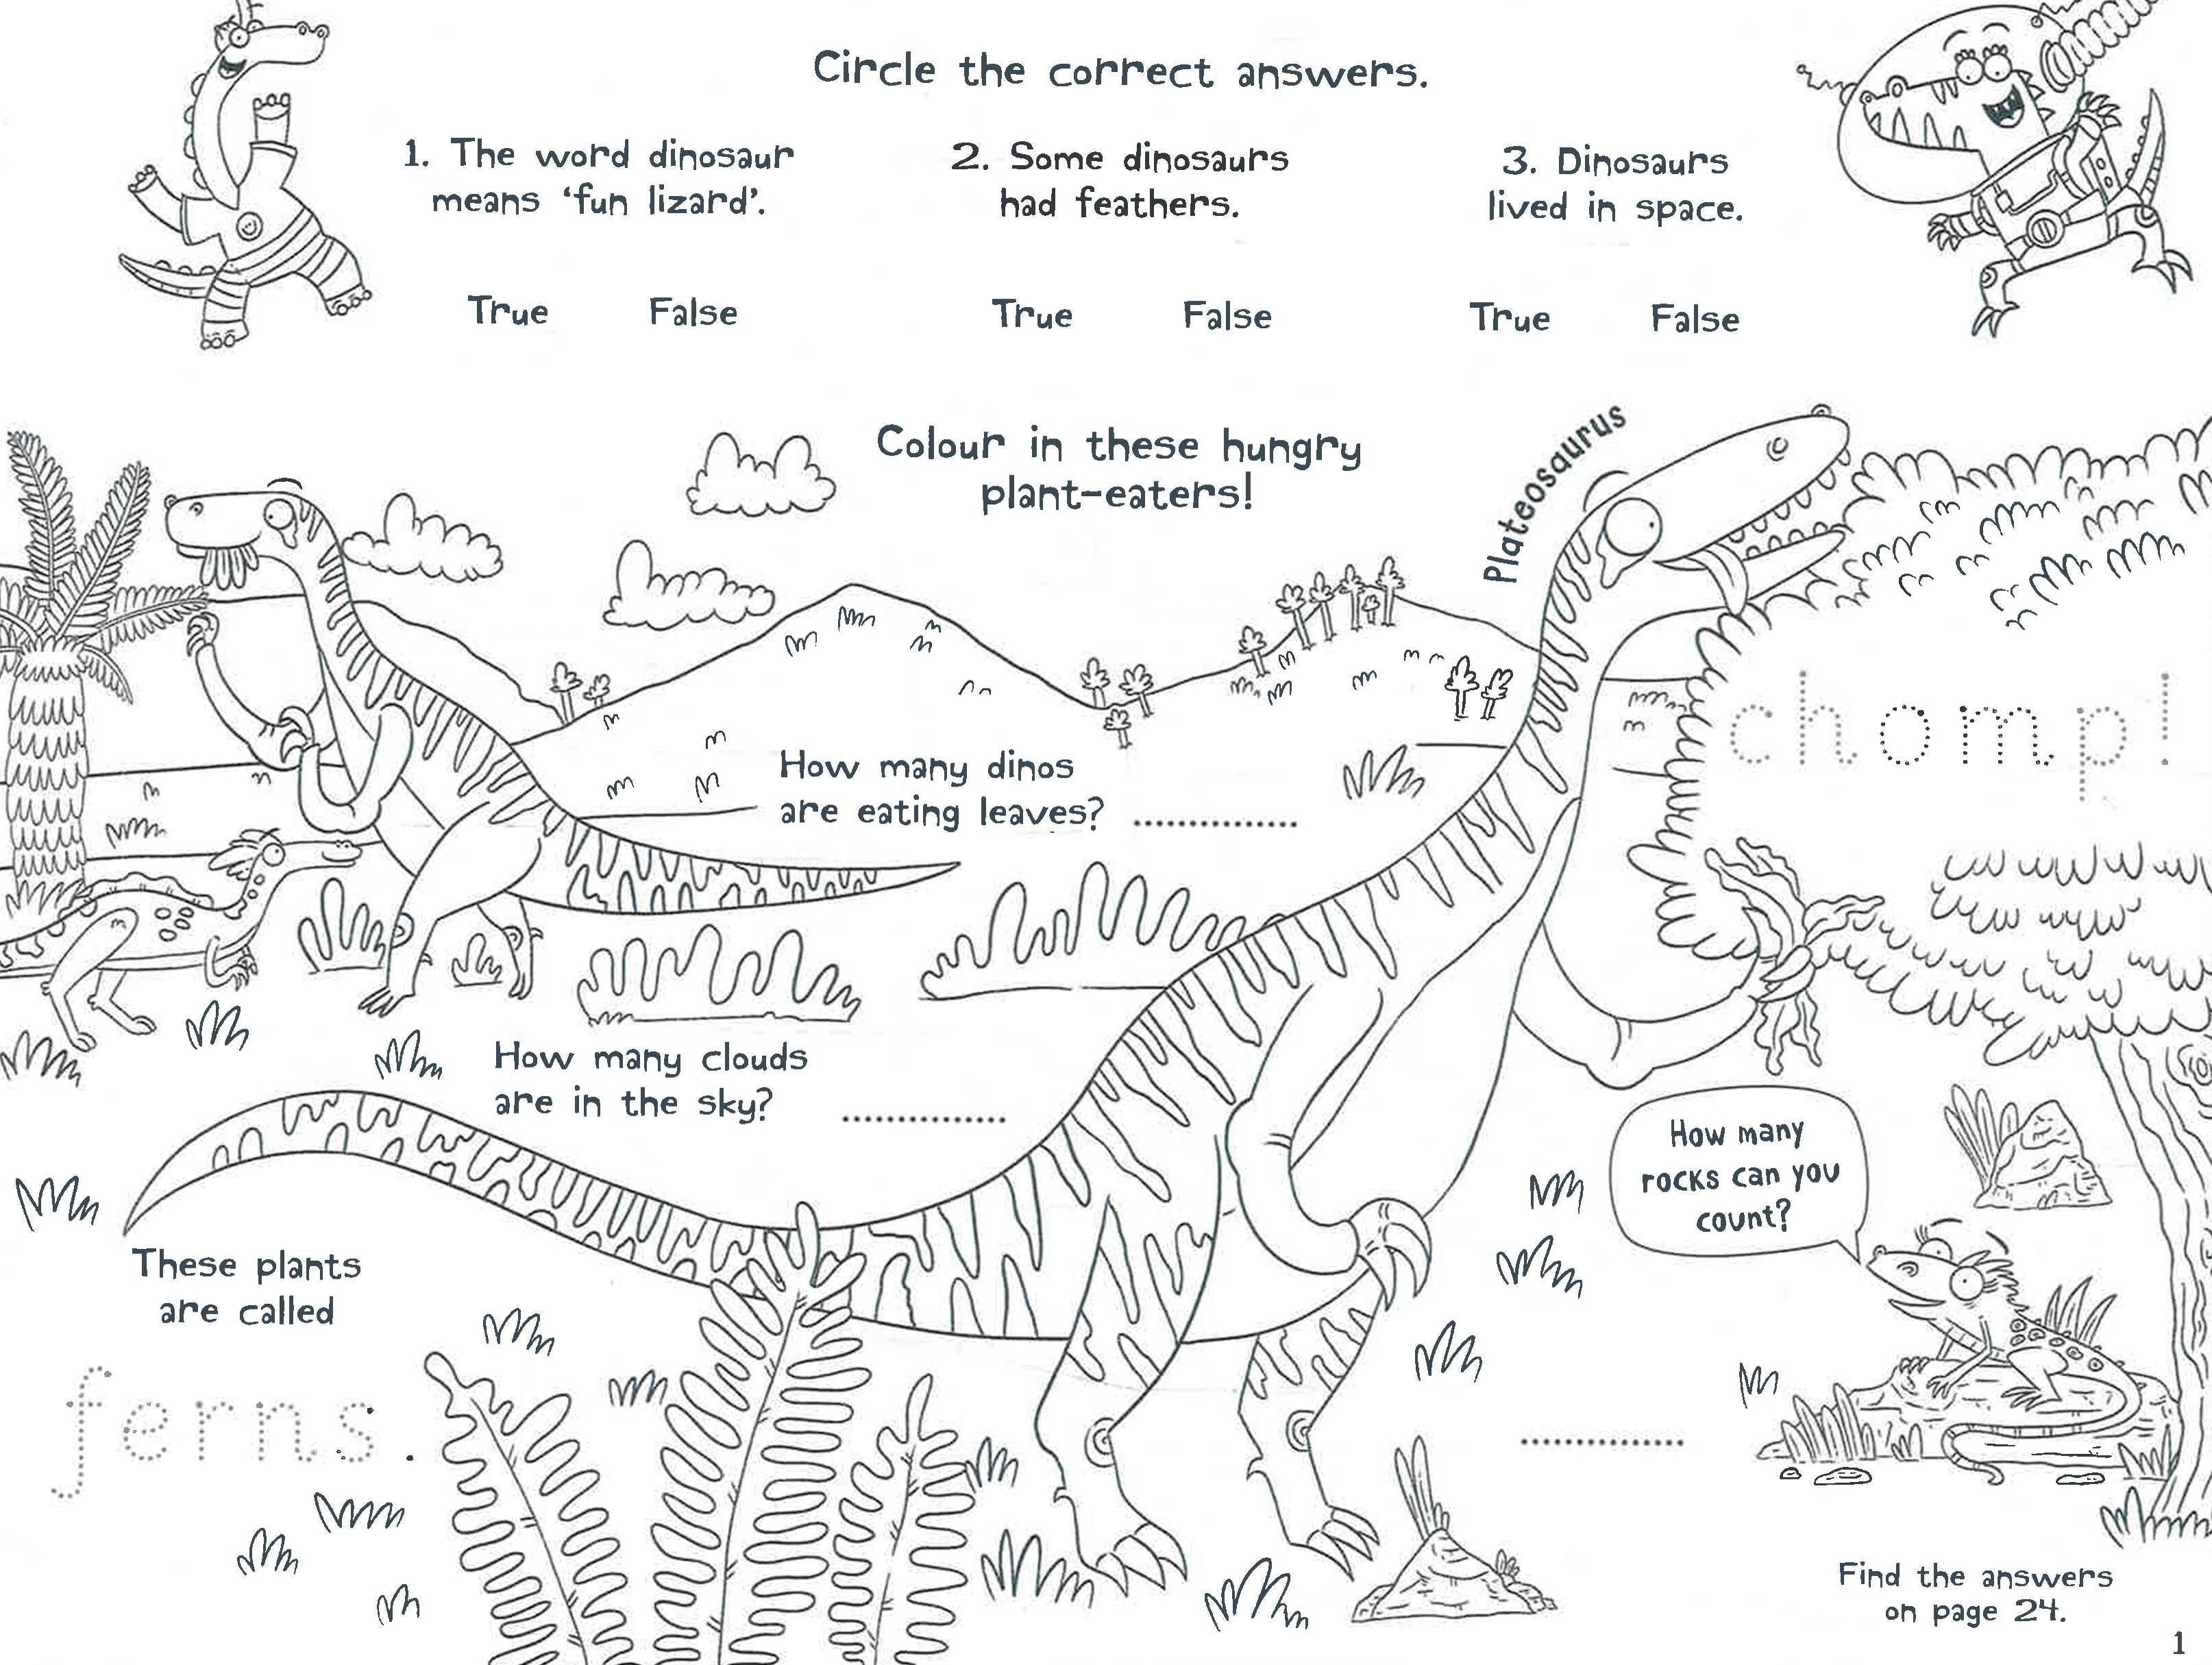 Circle the correct answers.
1. The word dinosaur
means ‘fun lizard’.
True False
2. Some dinosaurs
had feathers.
True False
3. Dinosaurs
lived in space.
True False
Colour in these hungry
plant-eaters!
Plateosaurus
chomp!
How many dinos
are eating leaves? ..............
How many clouds
are in the sky? ..............
How many
rocks can you
count?
..............
These plants
are called
ferns.
Find the answers
on page 24.
1